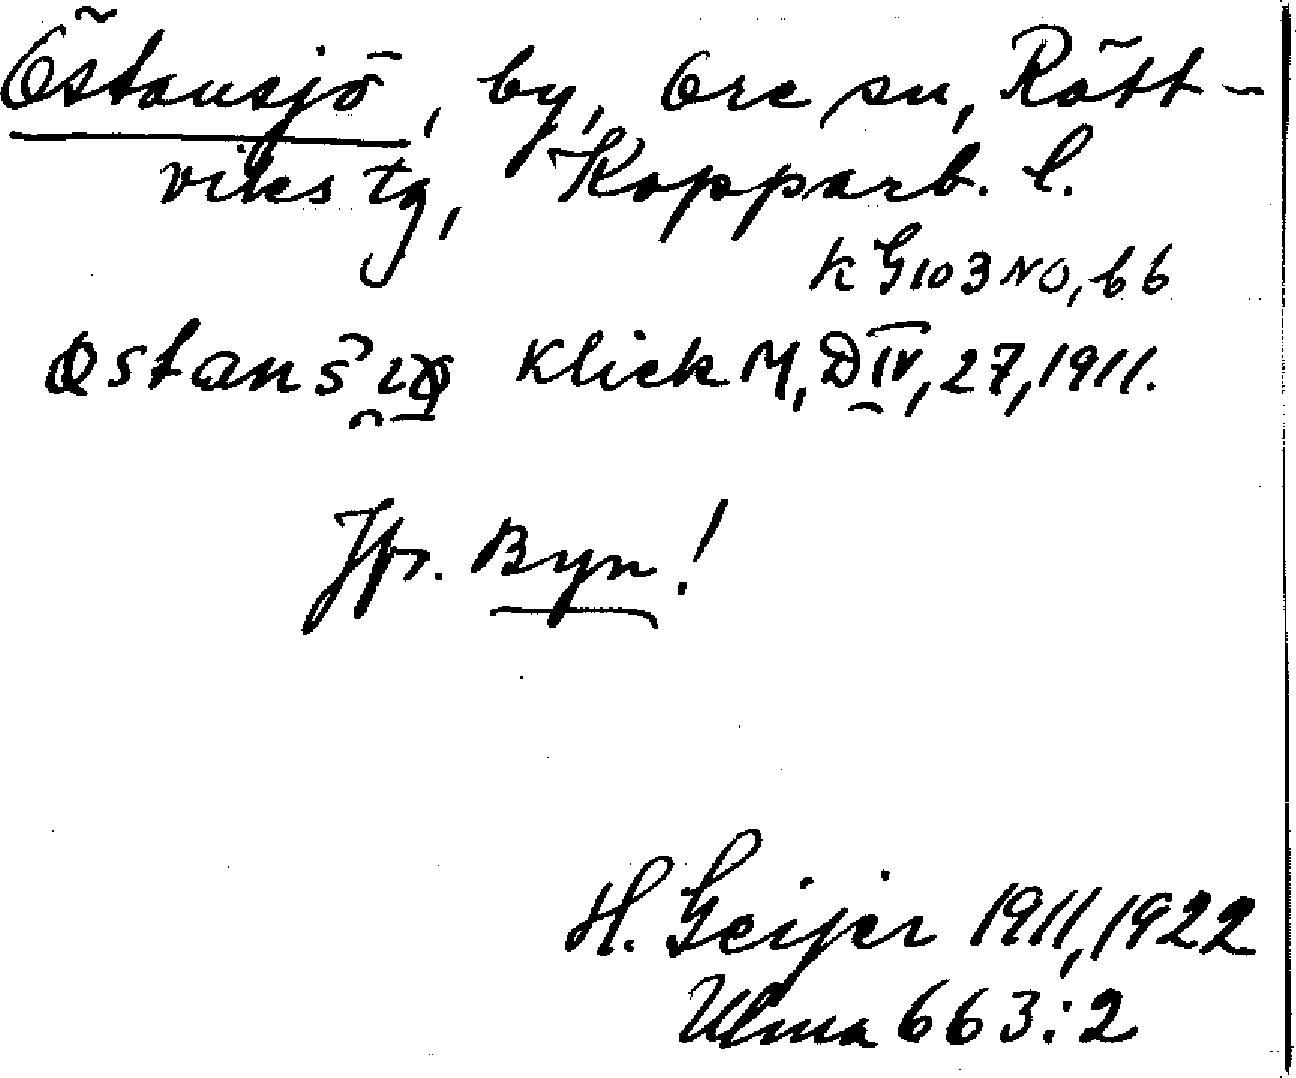 Östansjö, by, Ore sn, Rätt-
viks tg, Kopparb. l.
K G 103 NO, b6
Klick M, D IV, 27, 1911.
Jfr. Byn!
H. Geijer 1911, 1922
Ulma 663:2